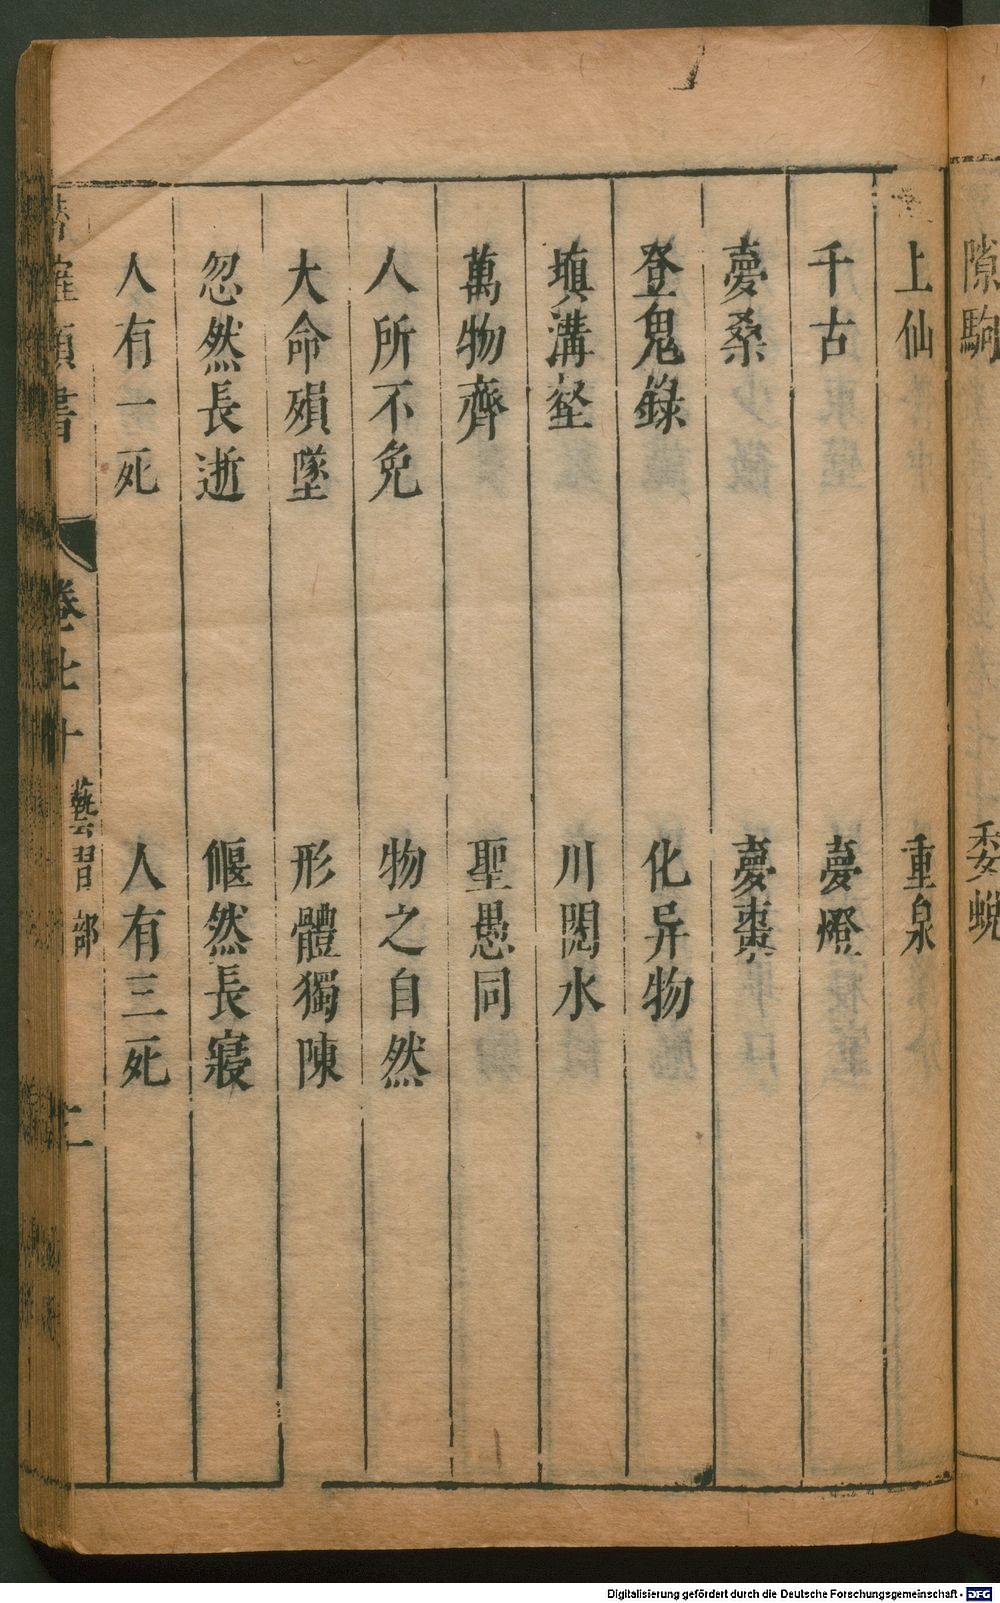 隙駒 婺蛻
上仙 重泉
千古 夢燈
夢桑 夢棗
登鬼錄 化异物
填溝壑 川閱水
萬物齊 聖愚同
人所不免 物之自然
大命殞墜 形體獨陳
忽然長逝 偃然長寢
人有一死 人有三死
類書 卷七十 藝習部 二
Digitalisierung gefördert durch die Deutsche Forschungsgemeinschaft - DFG